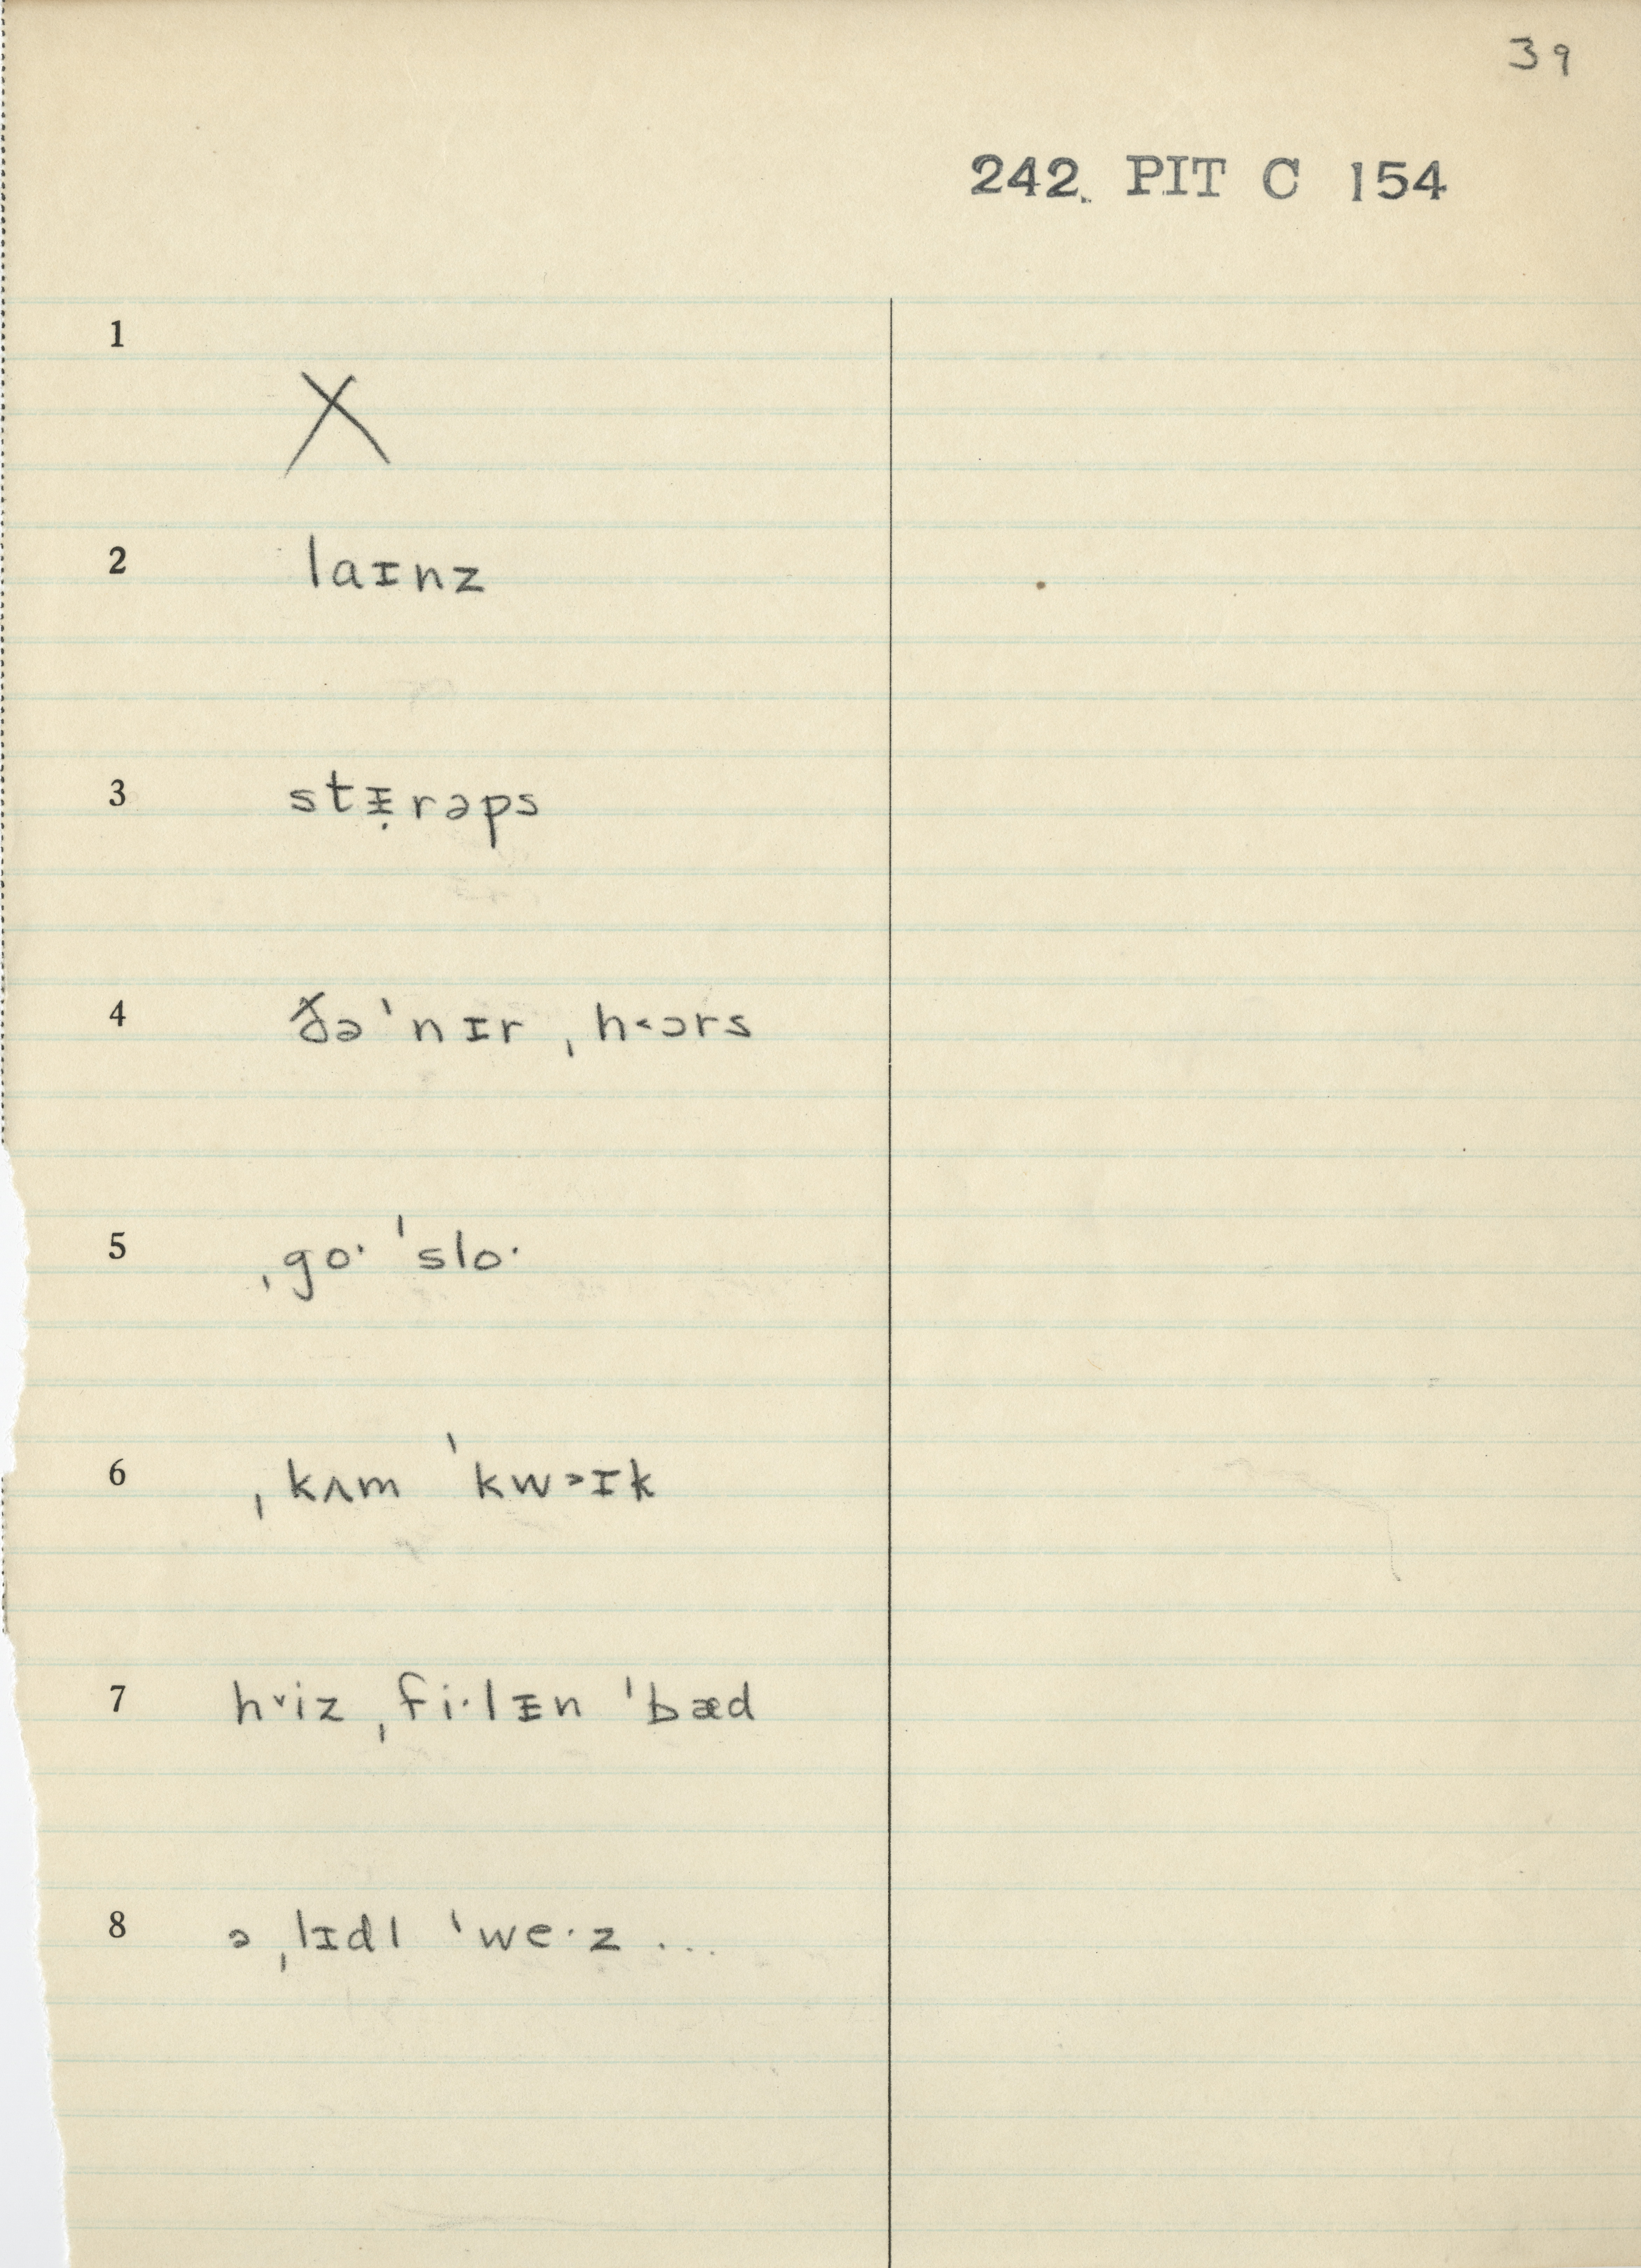 39
242. PIT C 154
1
X
2 laɪnz
3 stᵻ̣rəps
4 ðə ˈnɪr ˌh˂ɔrs
5 ˌgo· ˈslo·
6 ˌkʌm ˈkw˃ɪk
7 h˅iz ˌfi·lᵻn ˈbæd
8 ə ˌlɪdl ˈwe·z ...